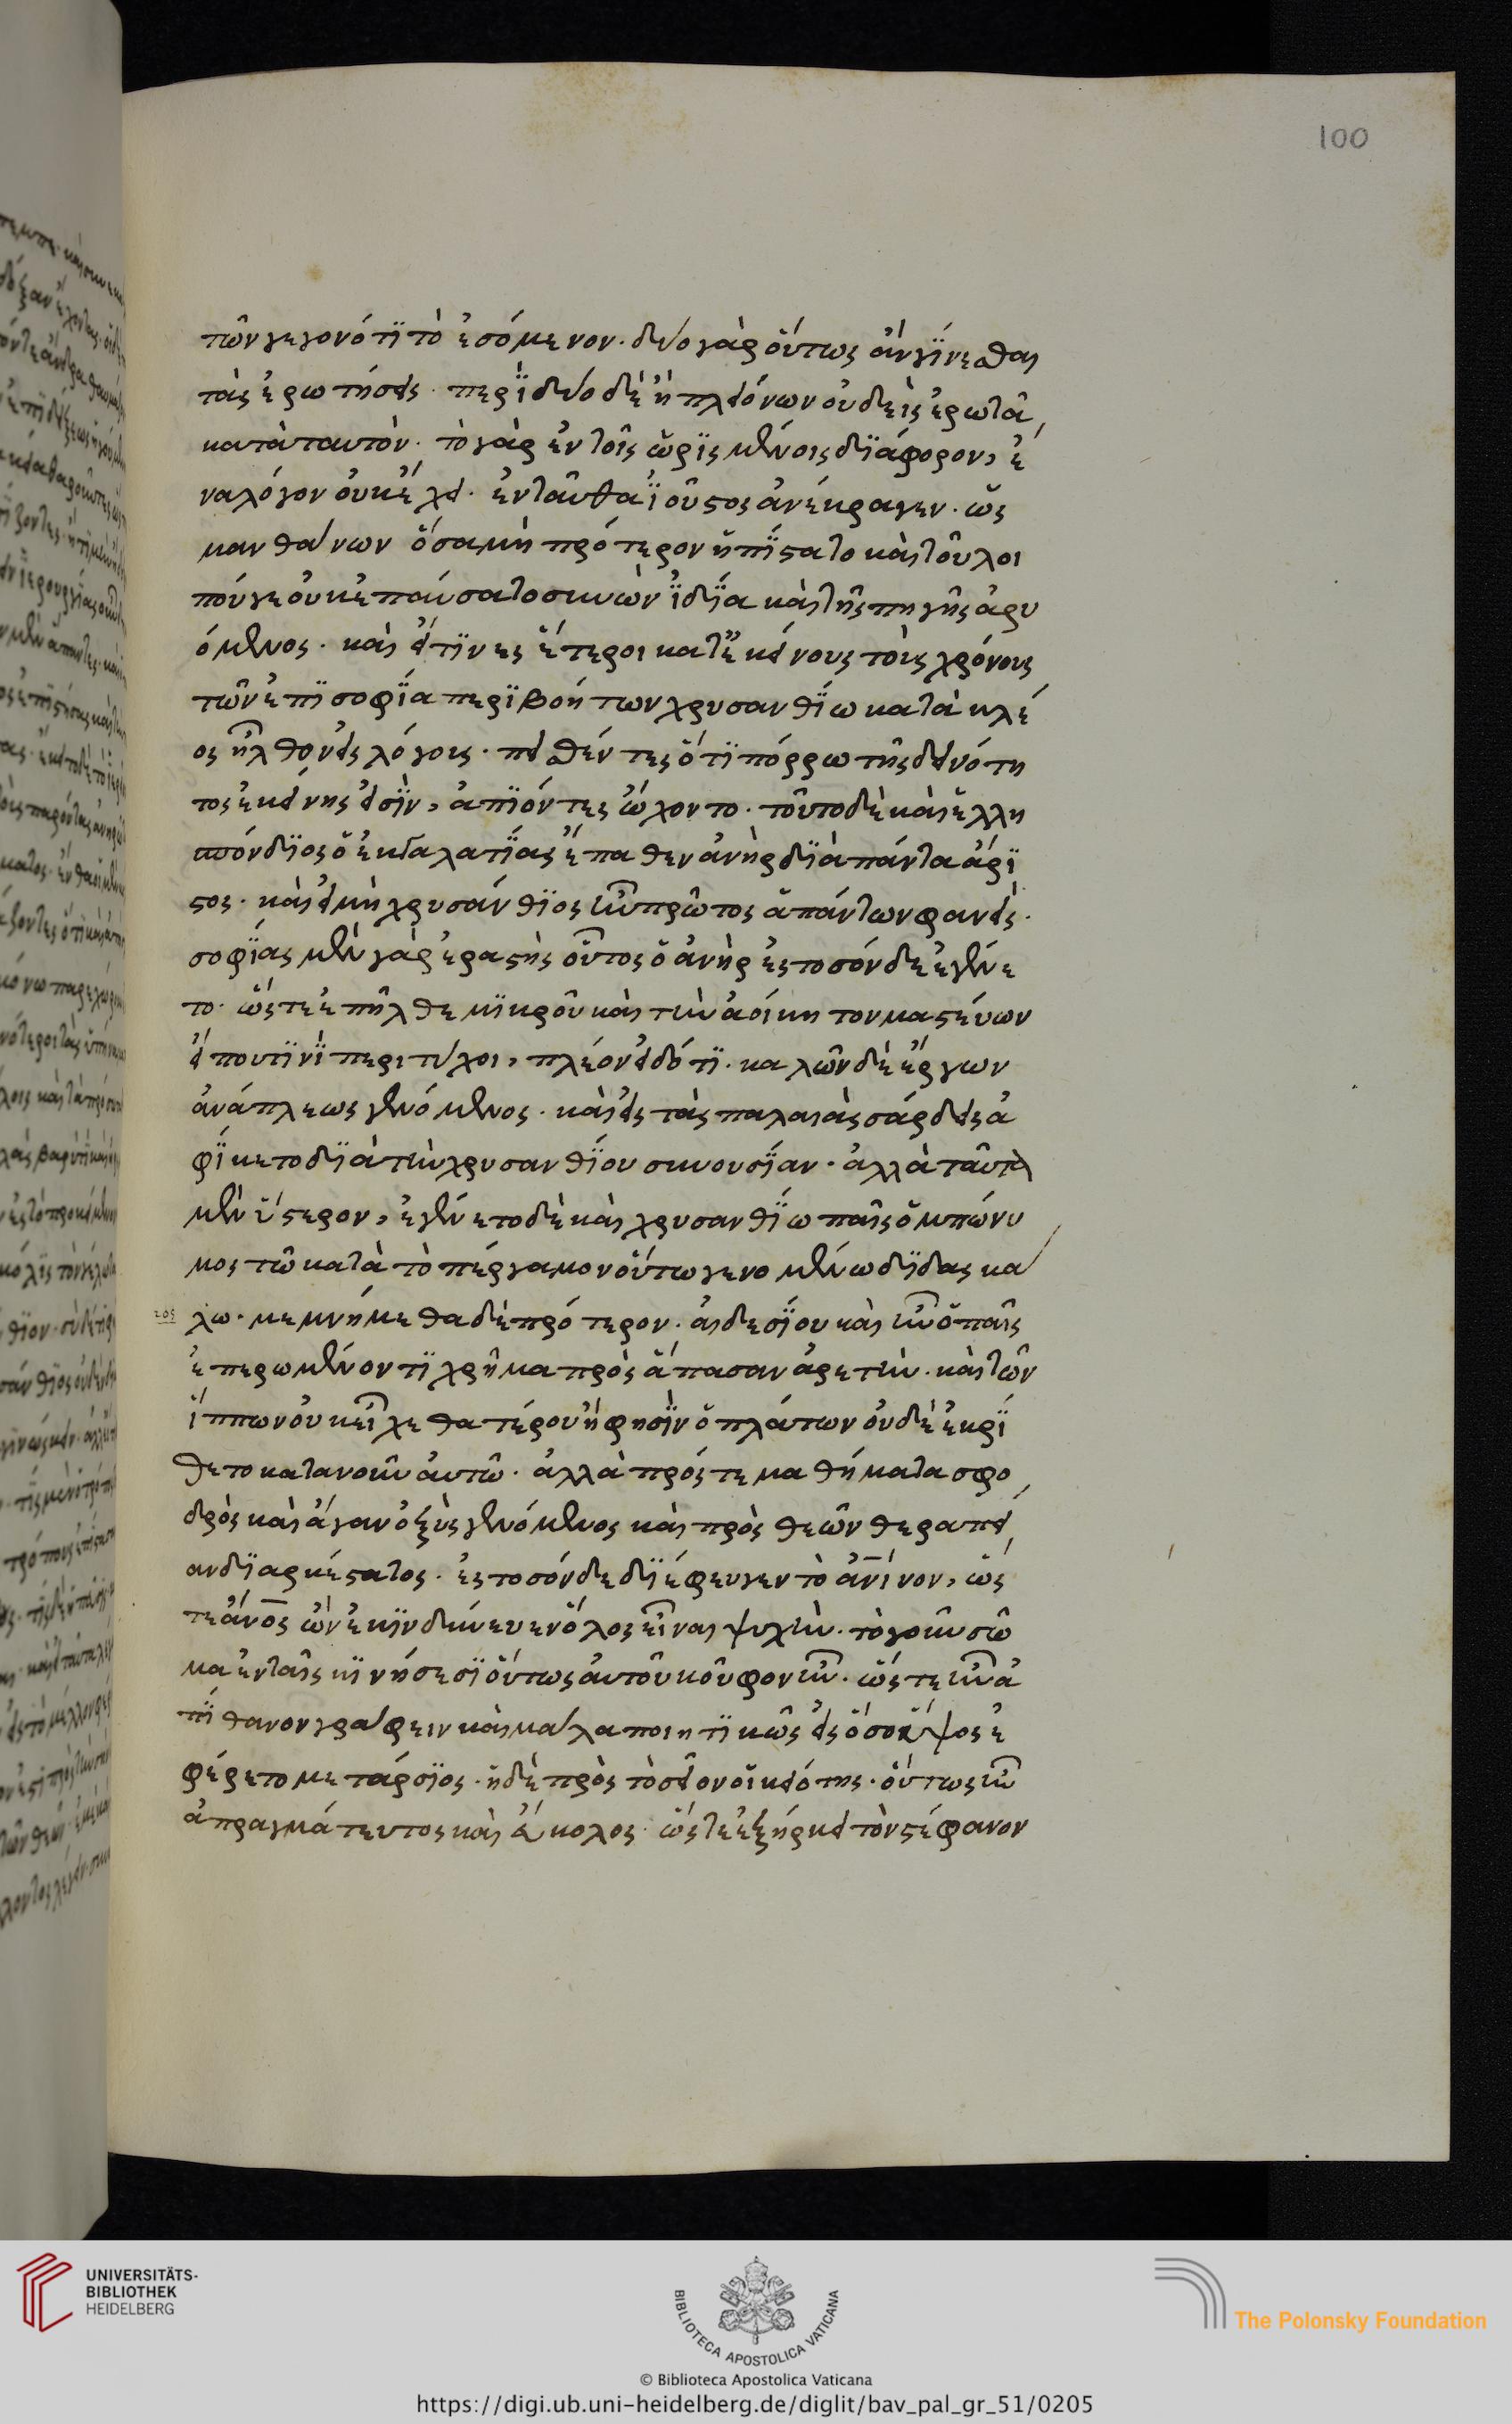 100
των γεγονότϊ τὸ ἐσόμενον. δύο γὰρ οὕτως ἂν γΐνεσθαι
τὰς ἐρωτήσεις. περῒ δύο δὲ ἢ πλειόνων οὐδεὶς ἐρωτᾶ
κατὰ ταυτὸν. τὸ γὰρ ἐν τοῖς ὡρϊσμένοις δϊάφορον, ἕ
να λόγον οὐκ ἔχει. ἐνταῦθα ϊοῦστος ἀνέκραγεν. ὡς
μανθάνων ὅσα μὴ πρότερον ἠπΐστατο καὶ τοῦ λοι
ποῦ γε οὐκ ἐπαύσατο συνὼν ϊδΐα καὶ τῆς πηγῆς ἀρυ
όμενος. καὶ εἴ τϊνες ἕτεροι κατ' ἐκείνους τοὺς χρόνους
τῶν ἐπϊ σοφΐα περϊβοήτων χρυσανθΐω κατὰ κλέ
ος ἦλθον εἰς λόγους. πεισθέντες ὅτϊ πόρρω τῆς δεινότη
τος ἐκείνης εἰσϊν, ἀπϊόντες ὤχοντο. τοῦτο δὲ καὶ ἑλλη
σπόνδϊος ὁ ἐκ γαλατΐας ἔπαθεν ἀνὴρ δϊὰ πάντα ἄρϊ
στος. καὶ εἰ μὴ χρυσάνθϊος ἦν πρῶτος ἁπάντων φανείς.
σοφΐας μὲν γὰρ ἐραστὴς οὗτος ὁ ἀνὴρ ἐς τοσόνδε ἐγένε
το. ὥστε ἐπῆλθε μϊκροῦ καὶ τὴν ἀοίκητον μαστεύων
εἴ που τϊνϊ περιτύχοι, πλέον εἰδότϊ. καλῶν δὲ ἔργων
ἀνάπλεως γενόμενος. καὶ εἰς τὰς παλαιὰς σάρδεις ἀ
φΐκετο δϊὰ τὴν χρυσανθΐου συνουσΐαν. ἀλλὰ ταῦτα
μὲν ὕστερον, ἐγένετο δὲ καὶ χρυσανθΐω παῖς ὁμπώνυ
μος τῶ κατὰ τὸ πέργαμον οὕτω γενομένω δϊδασκά
λω. μεμνήμεθα δὲ πρότερον. αἰδεσΐου καὶ ἦν ὁ παῖς
ἐπερωμένον τϊ χρῆμα πρὸς ἅπασαν ἀρετὴν. καὶ τῶν
ἵππων οὐκ εἶχε θατέρου ᾗ φησϊν ὁ πλάτων οὐδὲ ἐκρΐ
θετο κατανοῦν αὐτῶ. ἀλλὰ πρός τε μαθήματα σφο
δρὸς καὶ ἄγαν ὀξὺς γενόμενος καὶ πρὸς θεῶν θεραπεί
αν δϊαρκέστατος. ἐς τοσόνδε δϊέφευγεν τὸ ἀνῖνον, ὥσ
τε ἄνο̅ς ὢν ἐκϊνδύνευεν ὅλος εἶναι ψυχὴν. τὸ γοῦν σῶ
μα ἐν ταῖς κϊνήσεσϊ οὕτως αὐτοῦ κοῦφον ἦν. ὥστε ἦν ἀ
πΐθανον γράφειν καὶ μάλα ποιητϊκῶς εἰς ὅσον ὕψος ἐ
φέρετο μετάρσϊος. ἡ δὲ πρὸς τὸ θεῖον οἰκειότης. οὕτως ἦν
ἀπραγμάτευτος καὶ εὔκολος. ὥστε ἐξήρκει τὸν στέφανον
UNIVERSITÄTS-
BIBLIOTHEK
HEIDELBERG
BIBLIOTECA APOSTOLICA VATICANA
The Polonsky Foundation
© Biblioteca Apostolica Vaticana
https://digi.ub.uni-heidelberg.de/diglit/bav_pal_gr_51/0205